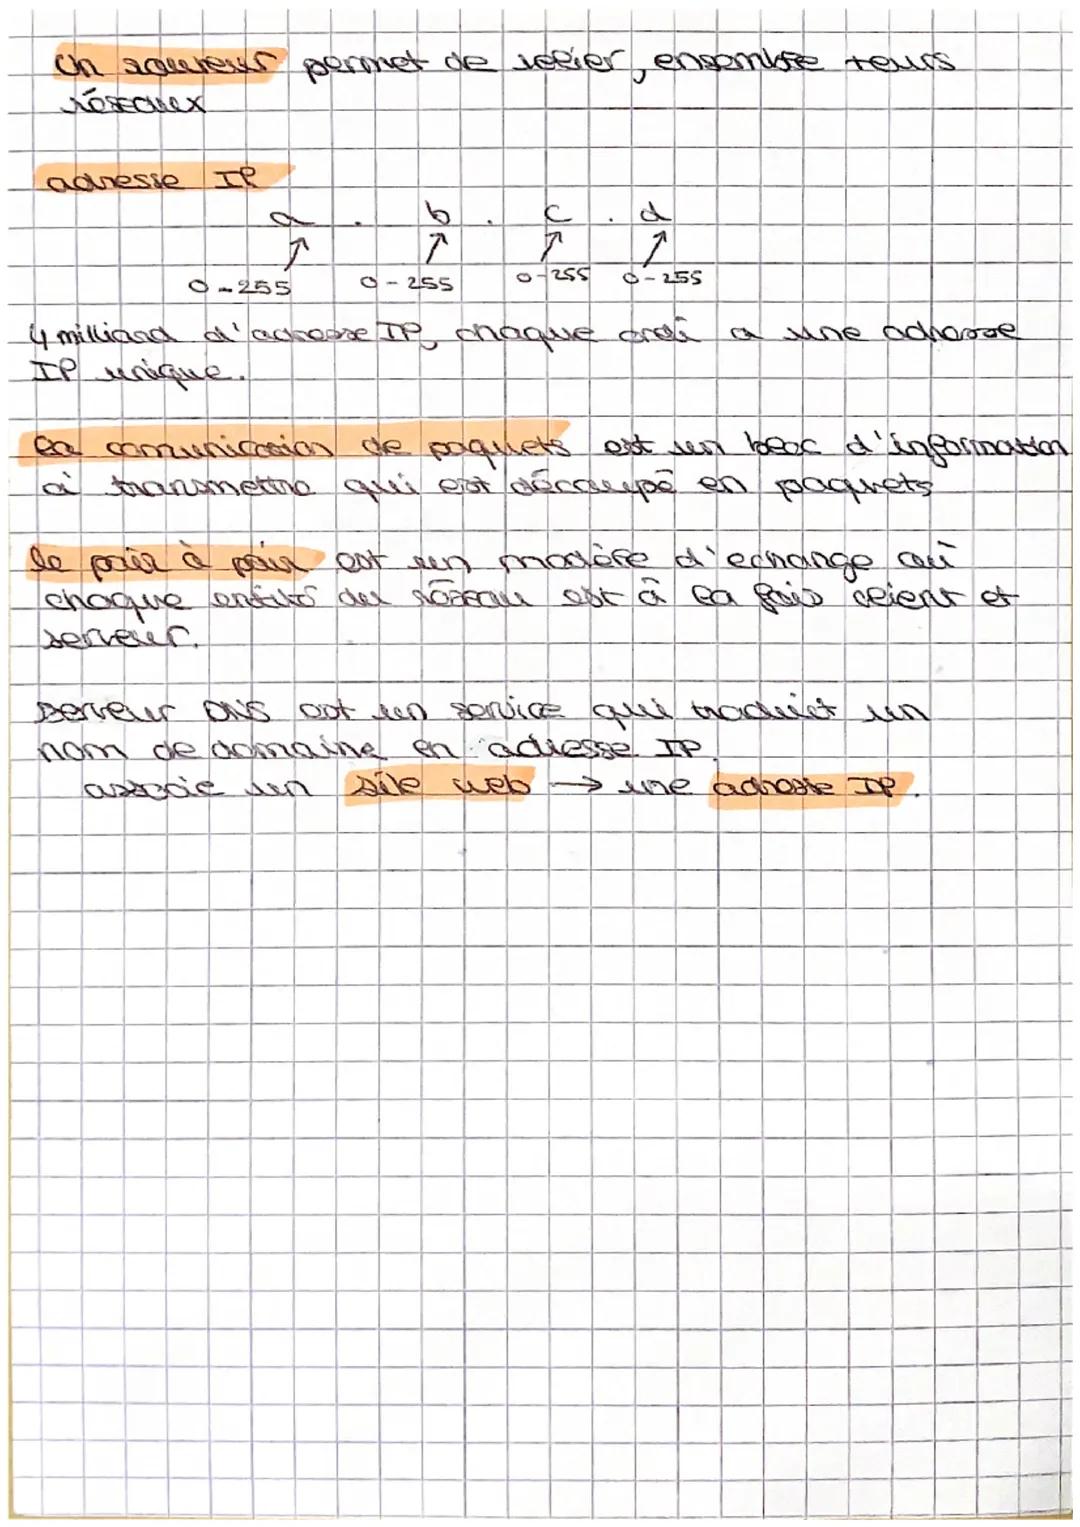 Un routeur permet de relier, ensemble leurs
réseaux
adresse IP
a . b . c . d
0-255 0-255 0-255 0-255
4 milliard d'adresse IP, chaque ordi a une adresse
IP unique.
la comunication de paquets est un bloc d'information
à transmettre qui est découpé en paquets
le pair à pair est un modèle d'echange où
chaque entité du réseau est à la fois client et
serveur.
serveur DNS est un service qui traduit un
nom de domaine en adresse IP.
associe un site web → une adresse IP.